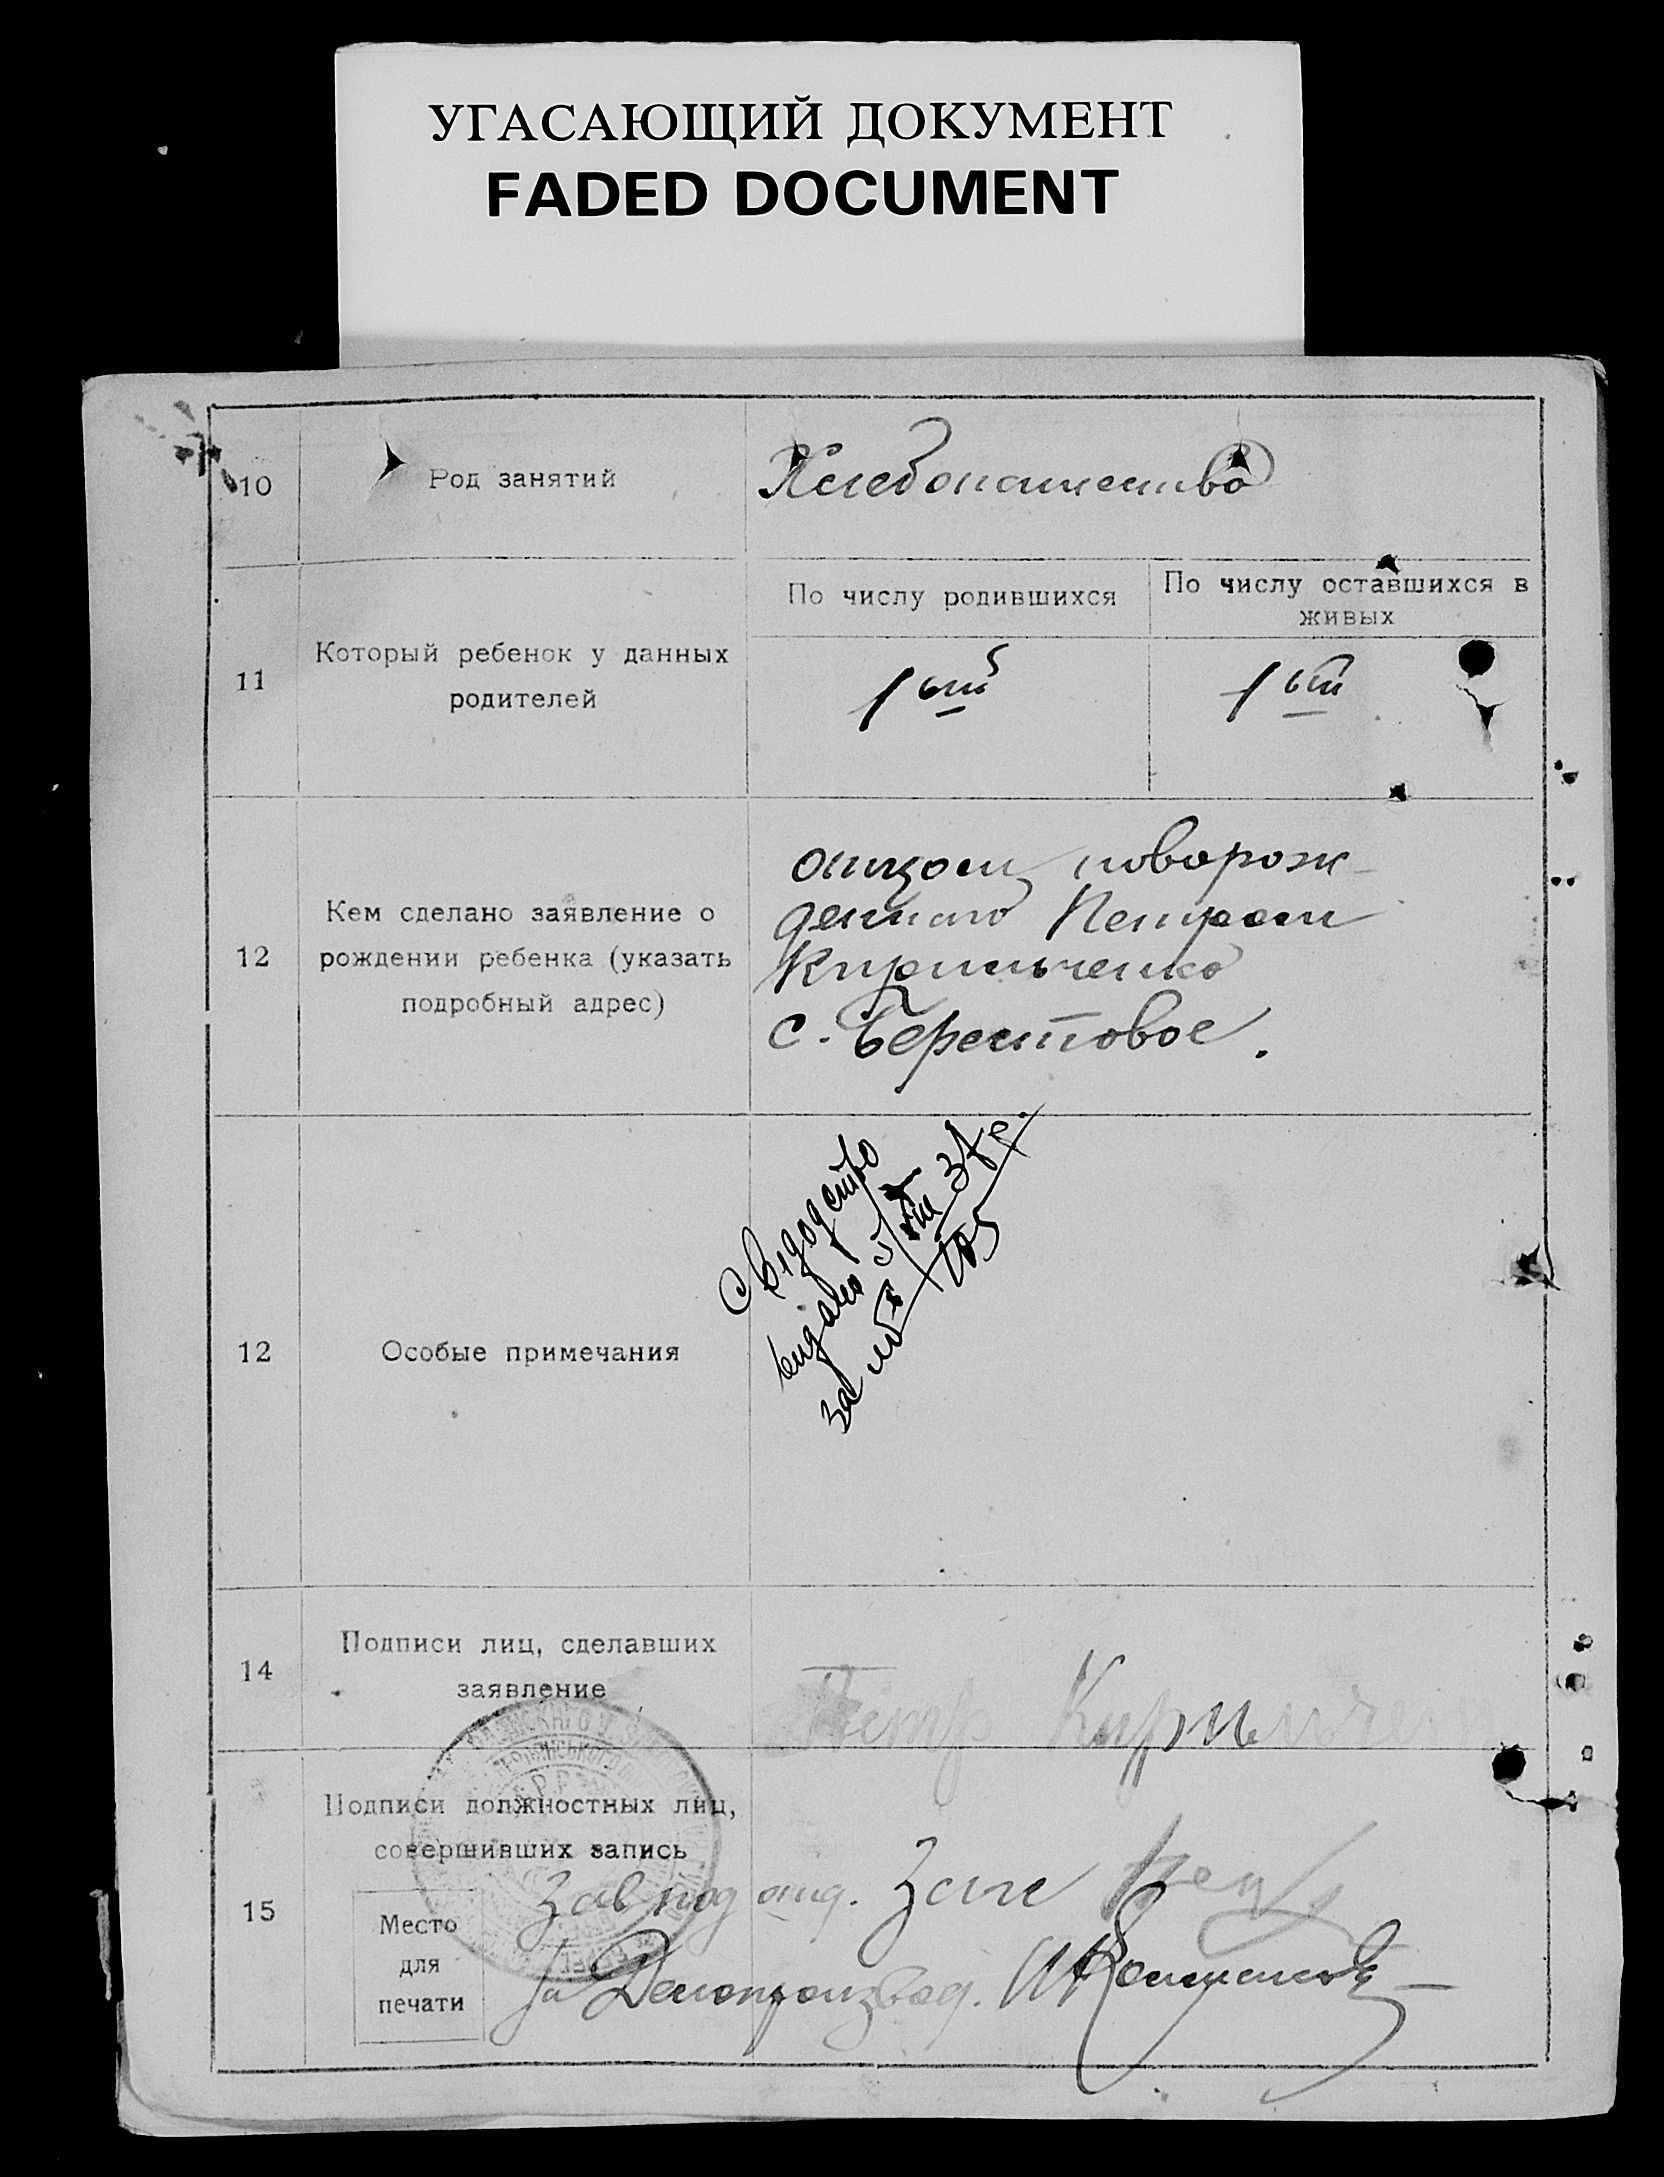 УГАСАЮЩИЙ ДОКУМЕНТ
FADED DOCUMENT
10
Род занятий
Хлебопашество
11
Который ребенок у данных
родителей
По числу родившихся
По числу оставшихся в
живых
1 ый
1 ый
12
Кем сделано заявление о
рождении ребенка (указать
подробный адрес)
отцом новорож-
денного Петром
Кирпиченко
с. Берестовое.
12
Особые примечания
Свідоцтво
видано 5/VIII 37 р.
за №
14
Подписи лиц, сделавших
заявление
Петр
15
Подписи должностных лиц,
совершивших запись
Место
для
печати
Зав под отд. Загс
За Делопроизвод.